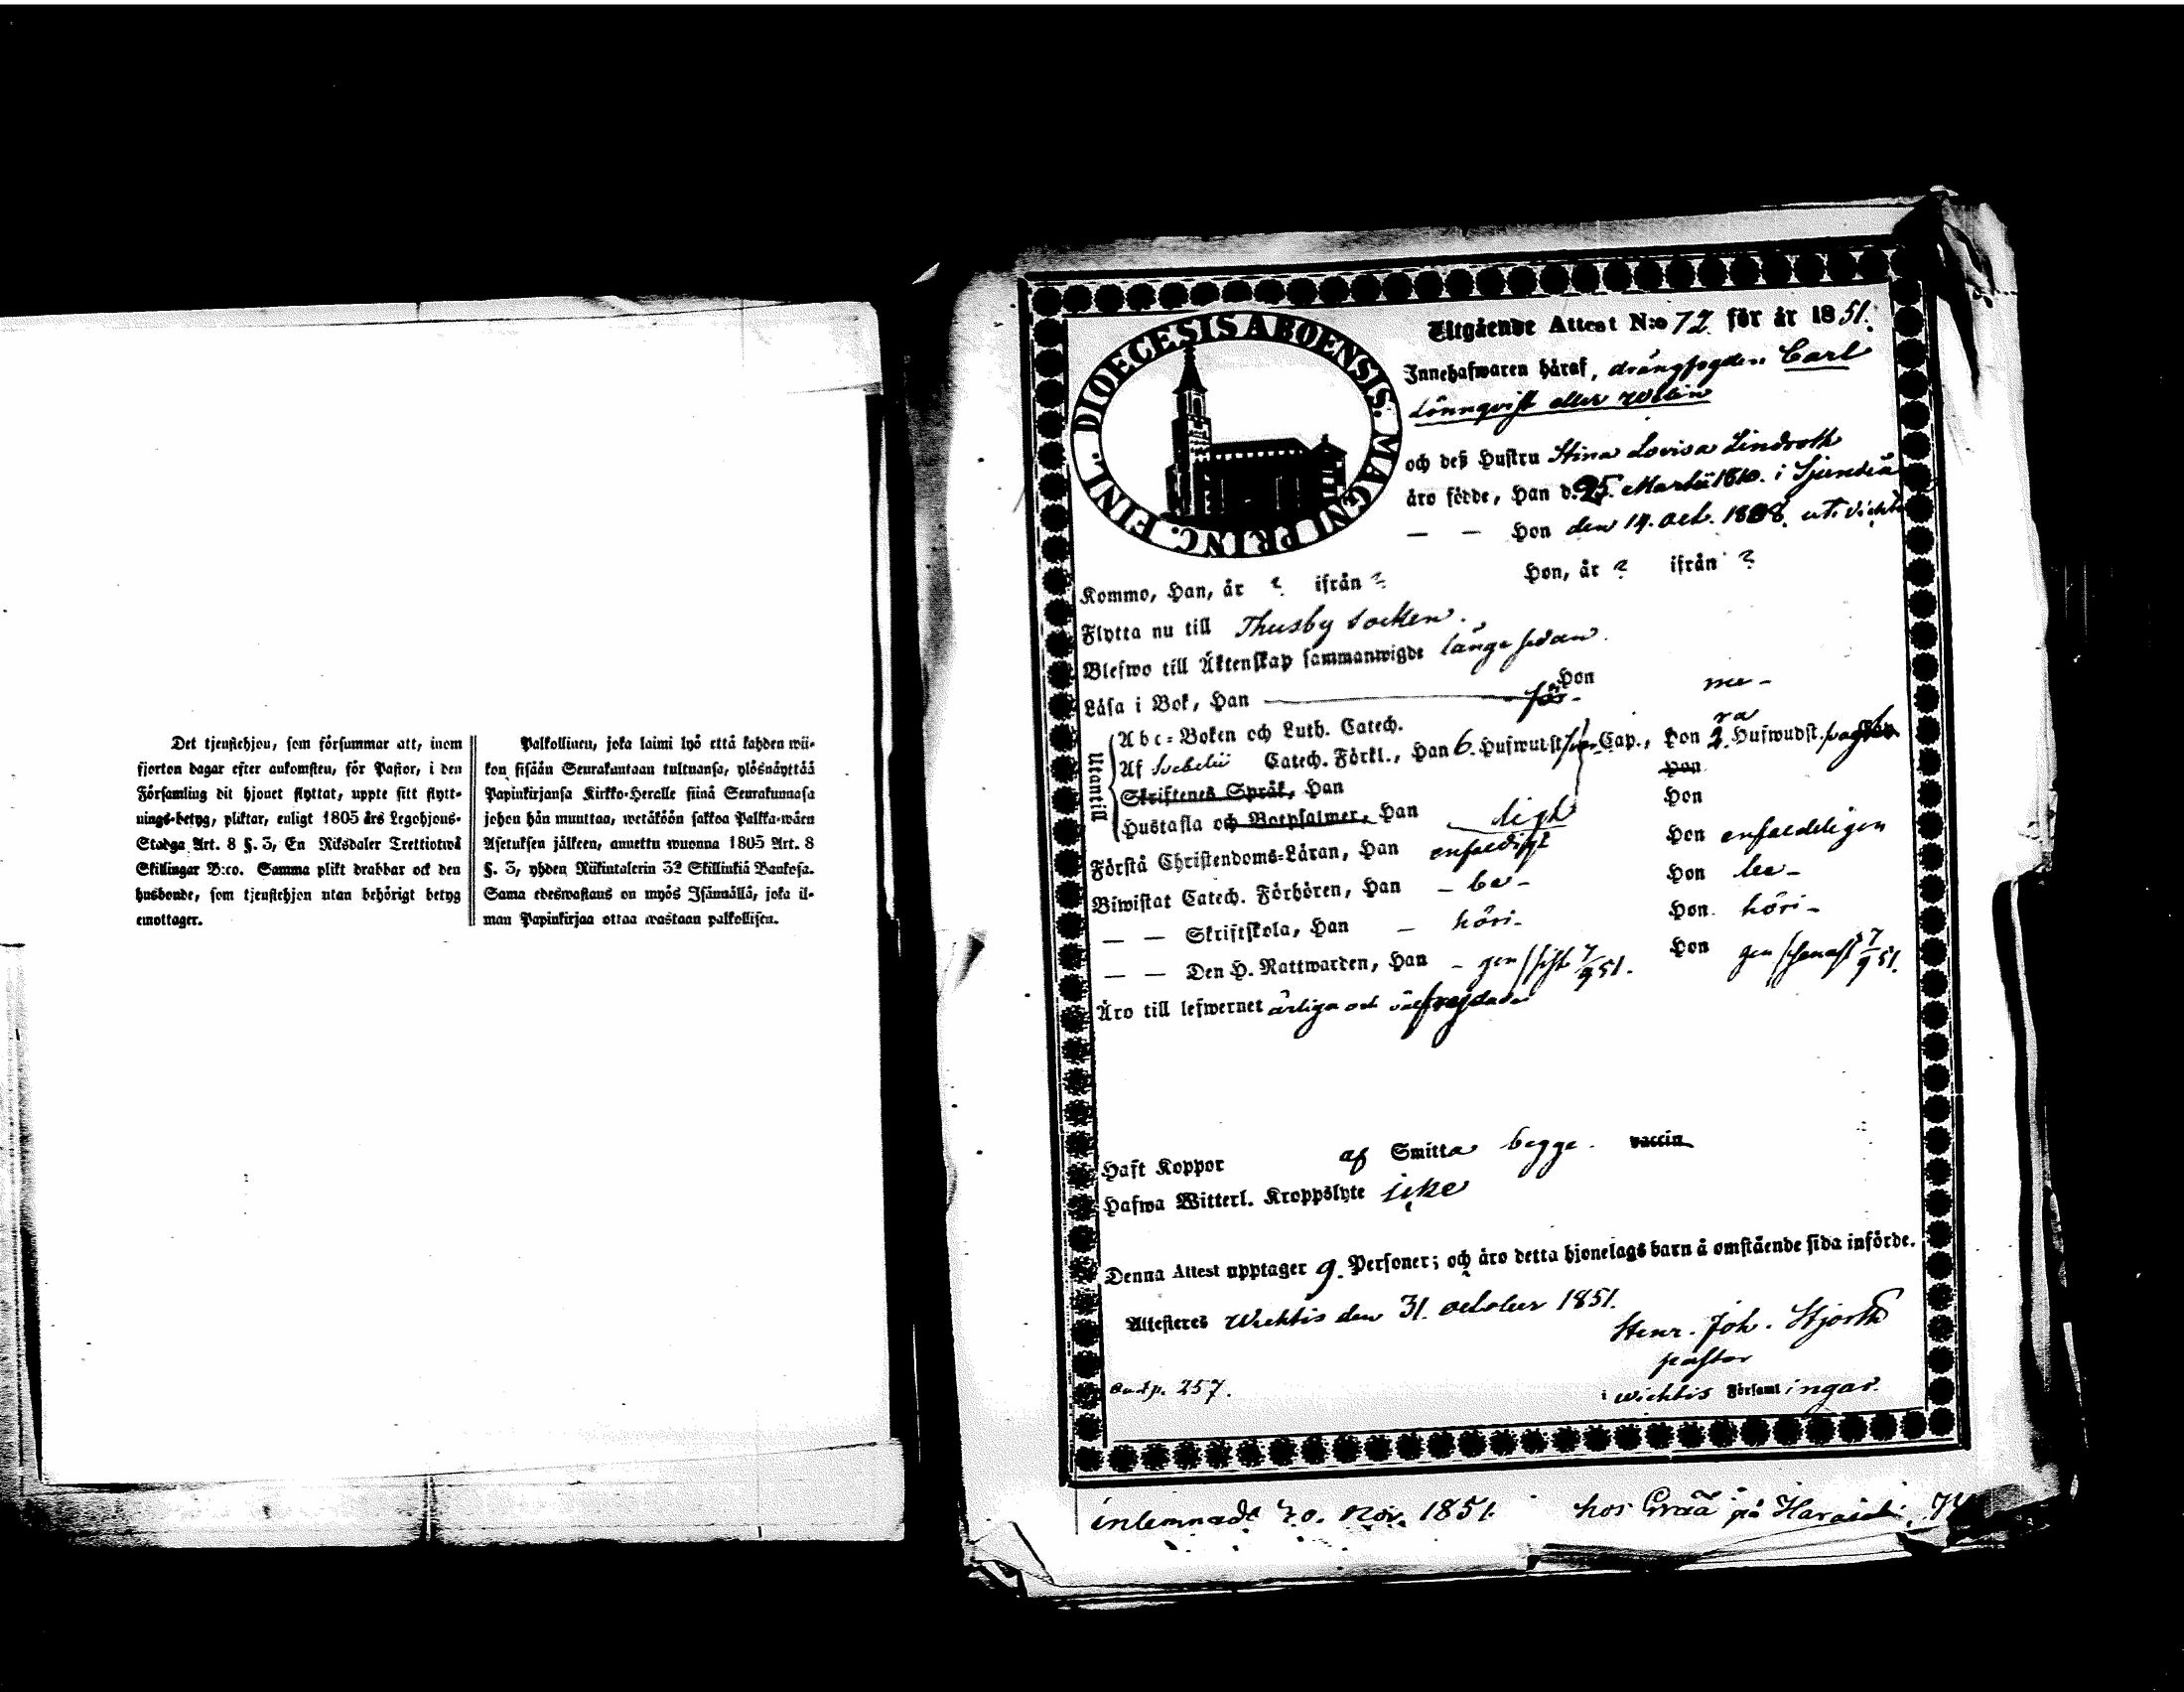 Det tjenstehjon, som försummar att, inom
fjorton dagar efter ankomsten, för Pastor, i den
Församling dit hjonet flyttat, uppte sitt flytt-
nings-betyg, pliktar, enligt 1805 års Legohjons-
Stadga Art. 8 §. 3, En Riksdaler Trettiotwå
Skillingar B:co. Samma plikt drabbar ock den
husbonde, som tjenstehjon utan behörigt betyg
emottager.
Palkollinen, joka laimi lyö että kahden wii-
kon sisään Seurakuntaan tultuansa, ylösnäyttää
Papinkirjansa Kirkko-Herralle siinä Seurakunnasa
johon hän muuttaa, wetäköön sakkoa Palkka-wäen
Asetuksen jälkeen, annettu wuonna 1805 Art. 8
§. 3, yhden Riikintalerin 32 Skillinkiä Bankosa.
Sama edeswastaus on myös Isännällä, joka il-
man Papinkirjaa ottaa wastaan palkollisen.
DIOECESIS ABOENSIS. MAGNI PRINC. FINL.
Utgående Attest N:o 72 för år 1851.
Innehafwaren häraf, drängfogden Carl
Lönnqvist eller
och deß Hustru Stina Lovisa Lindroth
äro födde, Han d. 25. Martii 1810. i Sjundeå
— — Hon den 14. Oct. 1808. uti Vichtis
Kommo, Han, år ? ifrån ? Hon, år ? ifrån ?
Flytta nu till Thusby socken.
Blefwo till Äktenskap sammanwigde länge sedan.
Läsa i Bok, Han för- Hon me-
Utantill
Abc-Boken och Luth. Catech. ra
Af Svebelii Catech. Förkl., Han 6. Hufwudst. Cap., Hon 2. Hufwudst.
Skriftenes Språk, Han Hon
Hustafla och Botpsalmer, Han ligt Hon
Förstå Christendoms-Läran, Han enfaldigt Hon enfaldeligen
Biwistat Catech. Förhören, Han - be- Hon be-
— — Skriftskola, Han - höri- Hon höri-
— — Den H. Nattwarden, Han - gen sist 7/9 51. Hon gen senast 7/9 51.
Äro till lefwernet ärliga och välfrejdade
Haft Koppor af Smitta begge. vaccin
Hafwa Witterl. Kroppslyte icke
Denna Attest upptager 9. Personer; och äro detta hjonelags barn å omstående sida införde.
Attesteres Wichtis den 31. october 1851.
Henr. Joh. Hjorth
pastor
pag. 257. i Wichtis Församlingar.
inlemnadt 20. Nov. 1851. hos Graä på